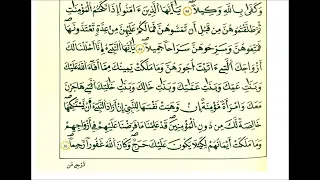 وَكَفَىٰ بِاللَّهِ وَكِيلًا ﴿٤٨﴾ يَٰٓأَيُّهَا الَّذِينَ ءَامَنُوٓا إِذَا نَكَحْتُمُ الْمُؤْمِنَٰتِ
ثُمَّ طَلَّقْتُمُوهُنَّ مِن قَبْلِ أَن تَمَسُّوهُنَّ فَمَا لَكُمْ عَلَيْهِنَّ مِنْ عِدَّةٍ تَعْتَدُّونَهَا
فَمَتِّعُوهُنَّ وَسَرِّحُوهُنَّ سَرَاحًا جَمِيلًا ﴿٤٩﴾ يَٰٓأَيُّهَا النَّبِيُّ إِنَّآ أَحْلَلْنَا لَكَ
أَزْوَٰجَكَ الَّٰتِىٓ ءَاتَيْتَ أُجُورَهُنَّ وَمَا مَلَكَتْ يَمِينُكَ مِمَّآ أَفَآءَ اللَّهُ
عَلَيْكَ وَبَنَاتِ عَمِّكَ وَبَنَاتِ عَمَّٰتِكَ وَبَنَاتِ خَالِكَ وَبَنَاتِ خَٰلَٰتِكَ الَّٰتِى هَاجَرْنَ
مَعَكَ وَامْرَأَةً مُّؤْمِنَةً إِن وَهَبَتْ نَفْسَهَا لِلنَّبِيِّ إِنْ أَرَادَ النَّبِيُّ أَن يَسْتَنكِحَهَا
خَالِصَةً لَّكَ مِن دُونِ الْمُؤْمِنِينَ قَدْ عَلِمْنَا مَا فَرَضْنَا عَلَيْهِمْ فِىٓ أَزْوَٰجِهِمْ
وَمَا مَلَكَتْ أَيْمَٰنُهُمْ لِكَيْلَا يَكُونَ عَلَيْكَ حَرَجٌ وَكَانَ اللَّهُ غَفُورًا رَّحِيمًا ﴿٥٠﴾